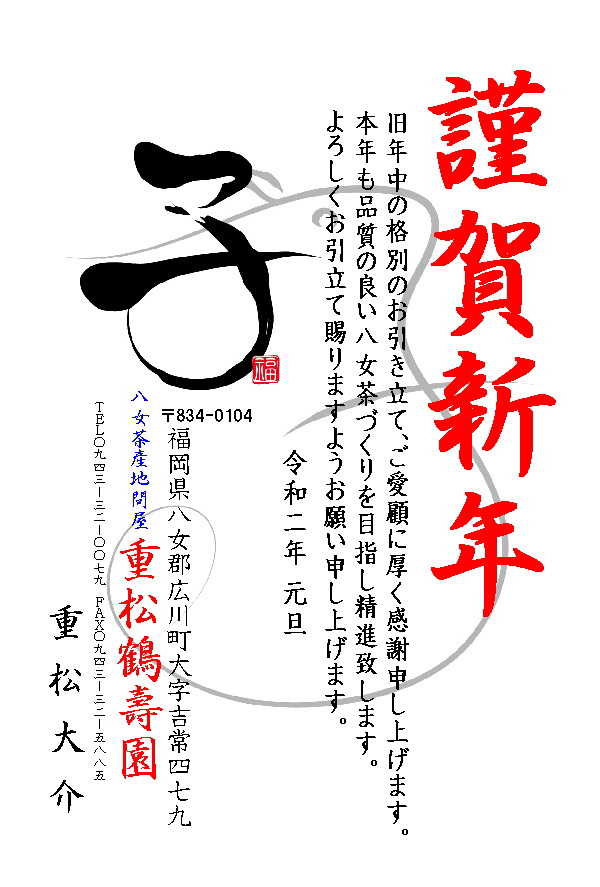 謹賀新年
旧年中の格別のお引き立て、ご愛顧に厚く感謝申し上げます。
本年も品質の良い八女茶づくりを目指し精進致します。
よろしくお引立て賜りますようお願い申し上げます。
令和二年 元旦
子
福
〒834-0104
福岡県八女郡広川町大字吉常四七九
八女茶産地問屋
重松鶴壽園
TEL〇九四三ー三二ー〇〇七九 FAX〇九四三ー三二ー五八八五
重松大介